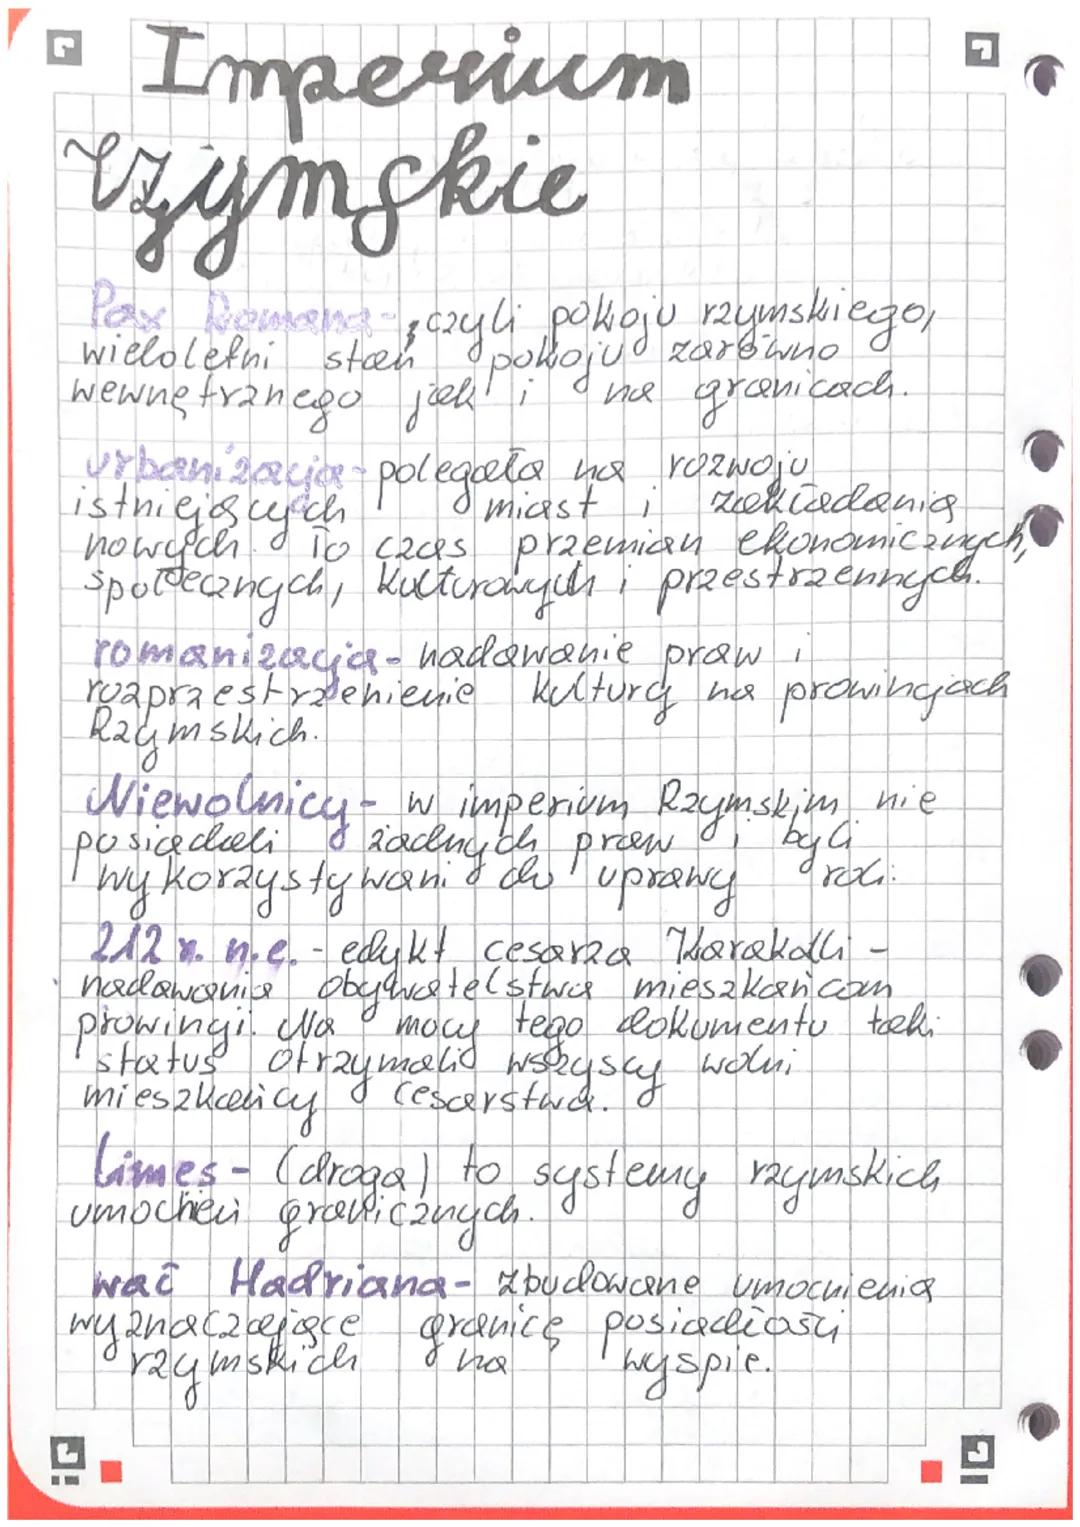 Imperium
rzymskie
Pax Romana - czyli pokoju rzymskiego,
wieloletni stan pokoju zarówno
wewnętrznego jak i na granicach.
urbanizacja - polegała na rozwoju
istniejących miast i zakładania
nowych. To czas przemian ekonomicznych,
społecznych, kulturowych i przestrzennych.
romanizacja - nadawanie praw i
rozprzestrzenienie kultury na prowincjach
Rzymskich.
Niewolnicy - w imperium Rzymskim nie
posiadali żadnych praw i byli
wykorzystywani do uprawy roli.
212 r. n.e. - edykt cesarza Karakalli -
nadawania obywatelstwa mieszkańcom
prowincji. Na mocy tego dokumentu taki
status otrzymali wszyscy wolni
mieszkańcy cesarstwa.
Limes - (droga) to systemy rzymskich
umocnień granicznych.
wał Hadriana - zbudowane umocnienia
wyznaczające granicę posiadłości
rzymskich na wyspie.